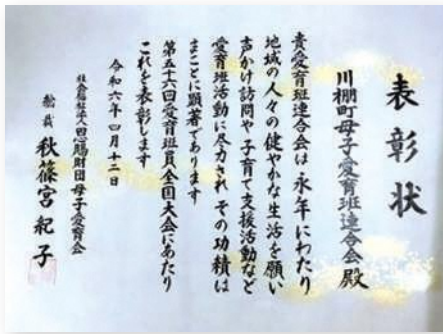 表彰状
川棚町母子愛育班連合会 殿
貴愛育班連合会は永年にわたり
地域の人々の健やかな生活を願い
声かけ訪問や子育て支援活動など
愛育班活動に尽力され その功績は
まことに顕著であります
第五十六回愛育班員全国大会にあたり
これを表彰します
令和六年四月十二日
社会福祉法人恩賜財団母子愛育会
総裁 秋篠宮紀子